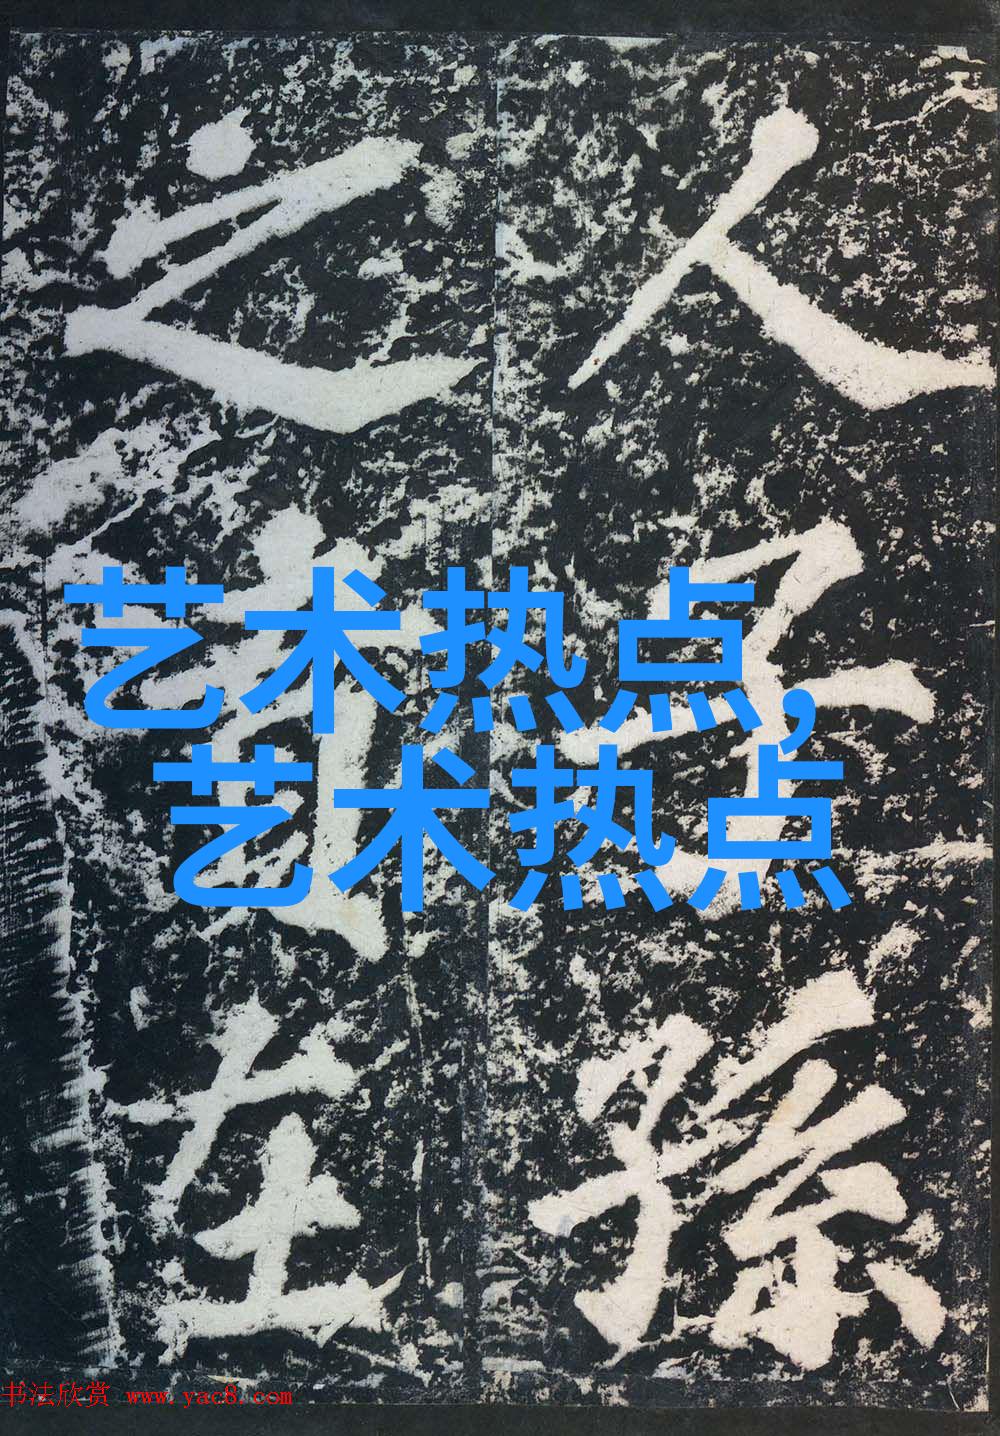 人孫
之在
艺术热点,
艺术热点
书法欣赏 www.yac8.com